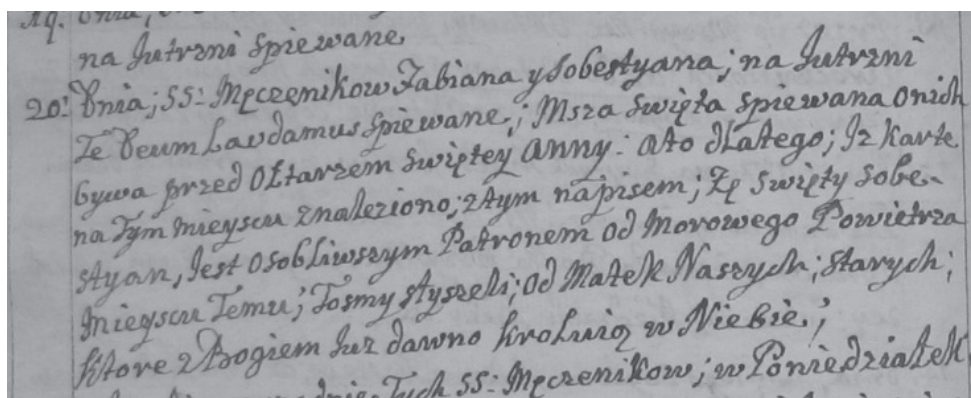 na Jutrzni spiewane
20: Dnia; SS: Męczęnikow Fabiana y Sobestyana; na Jutrzni
Te Deum Laudamus spiewane; Msza Swięta spiewana o nich
bywa przed Ołtarzem Swiętey Anny: a to dlatego; Iz Karte
na tym mieyscu znaleziono; z tym napisem; Zę Swięty Sobe-
styan, Jest osobliwszym Patronem od Morowego Powietrza
Mieyscu Temu; Tosmy słyszeli; od Matek Naszych; starych;
Ktore z Bogiem Juz dawno Kroluią w Niebie;
Tych SS: Męczenikow; w Poniedziałek